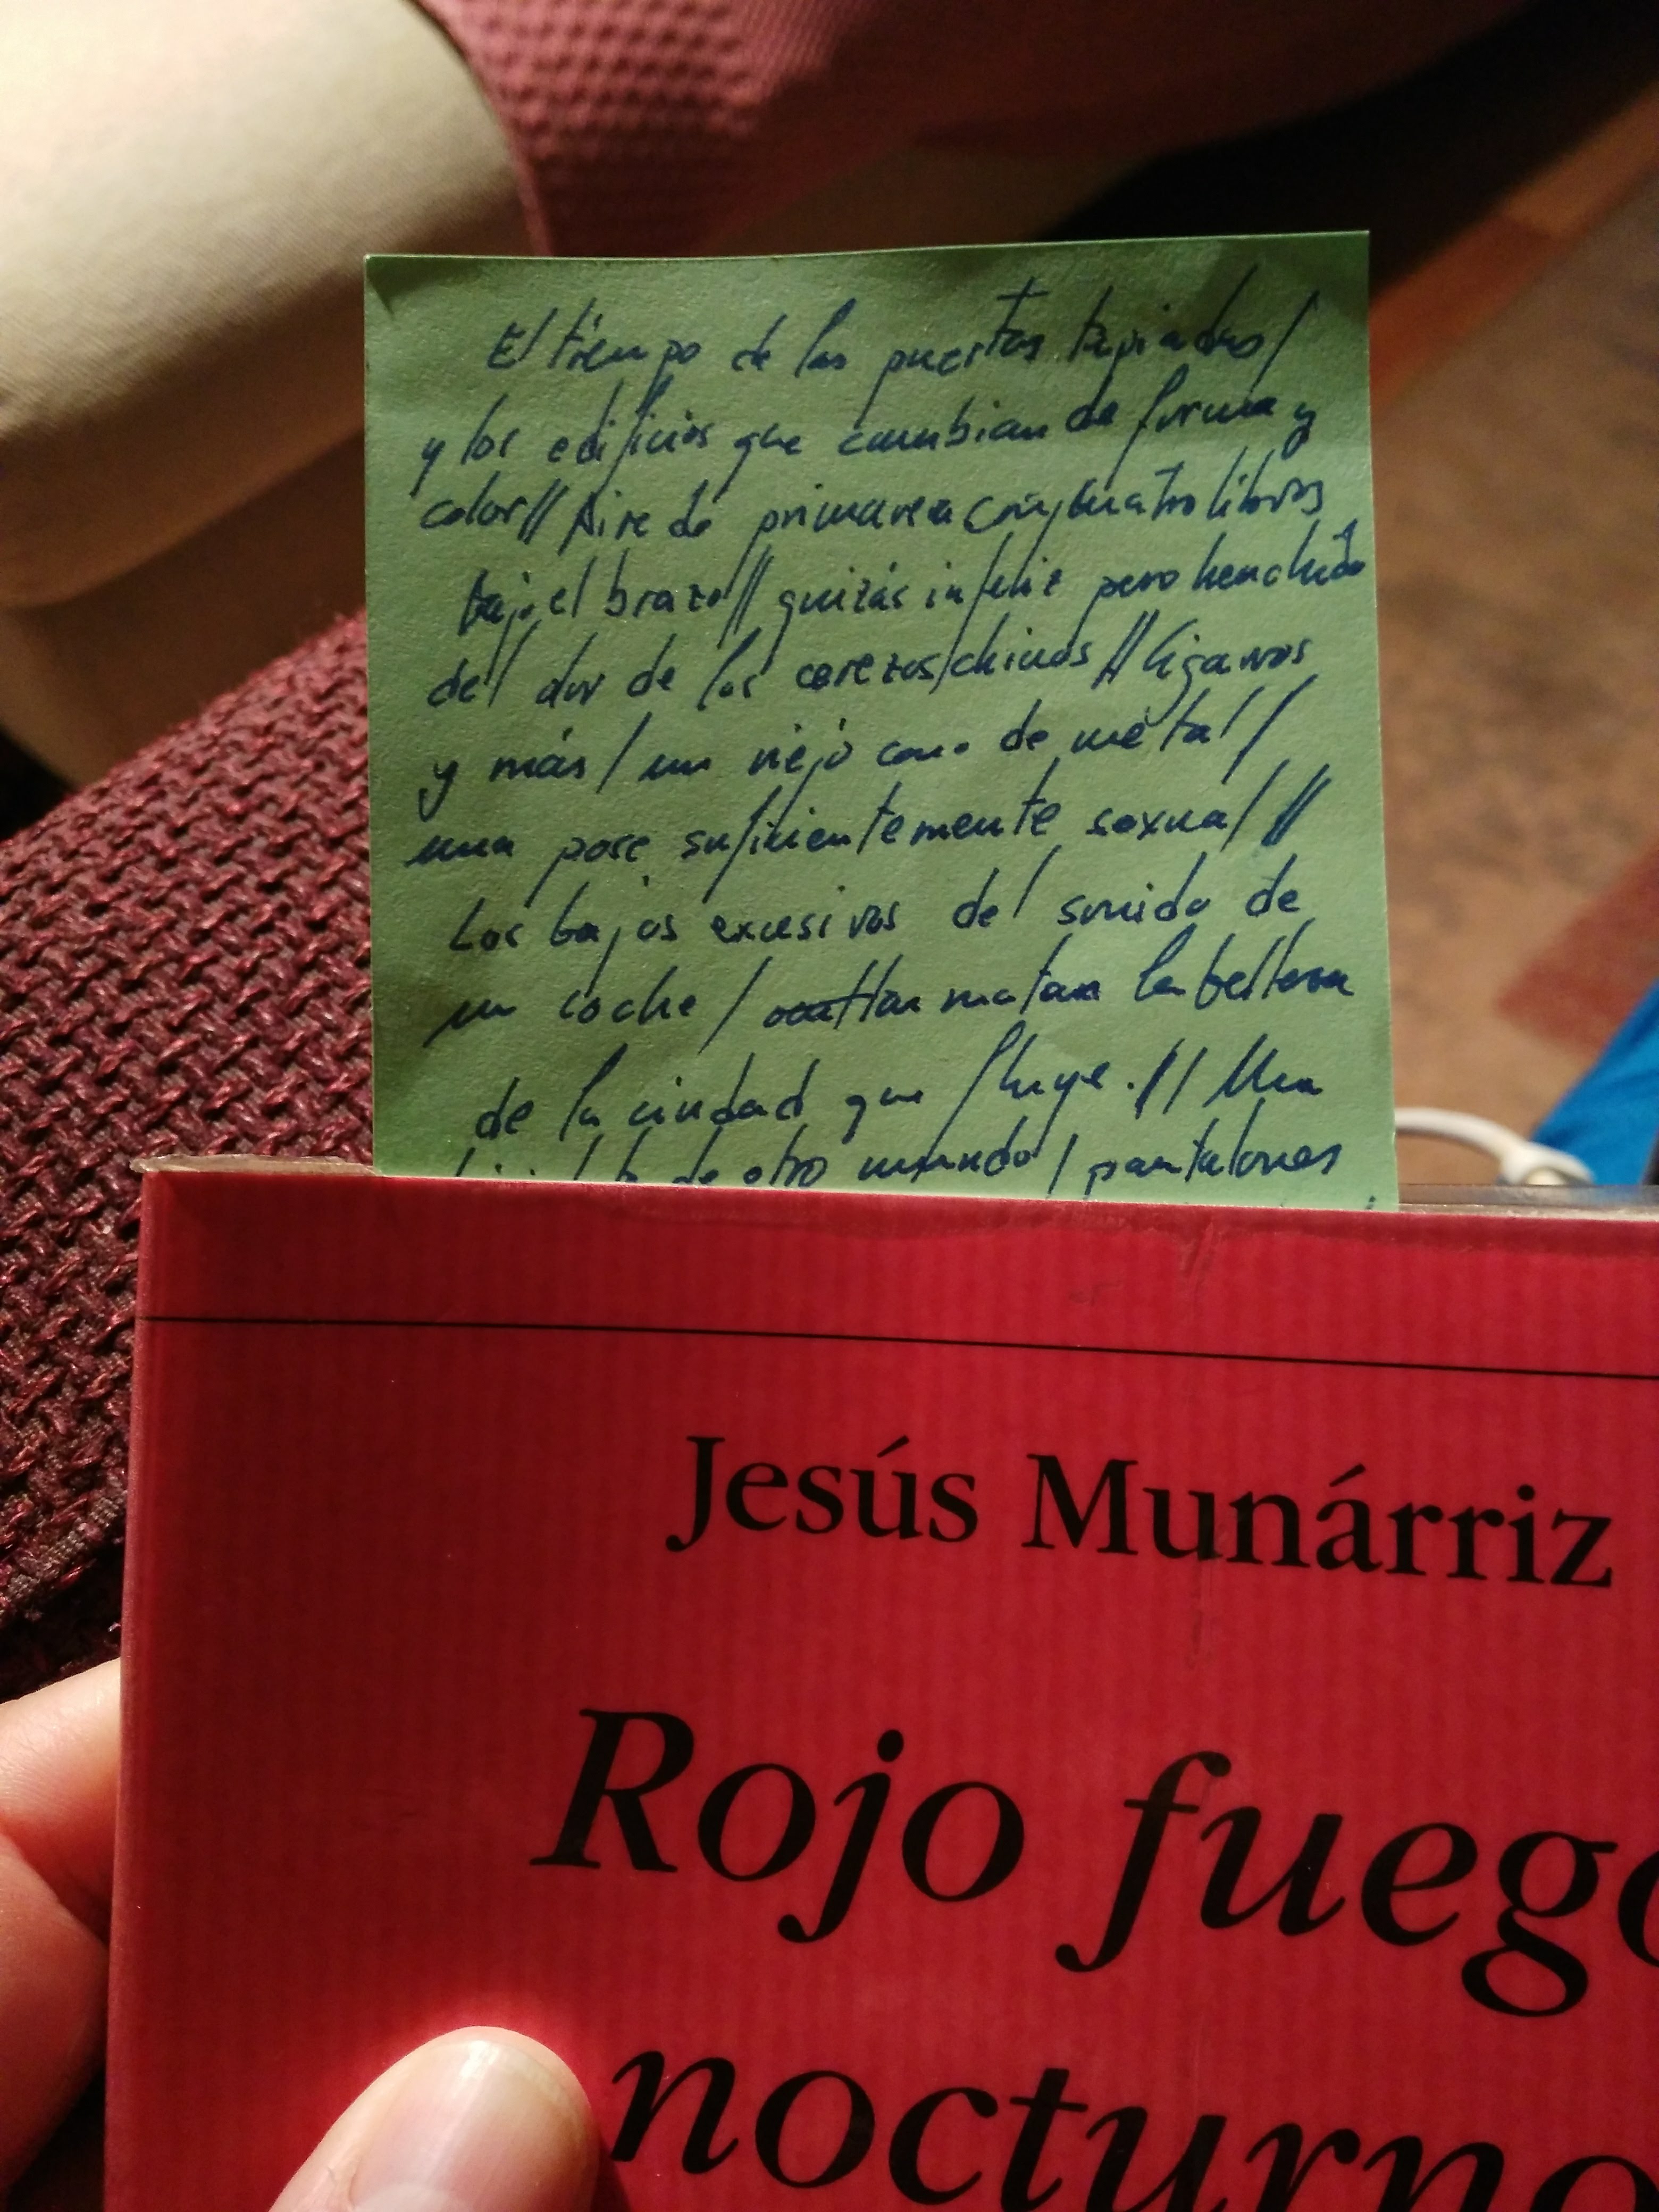 El tiempo de las puertas tapiadas/
y los edificios que cambian de forma y
color// Aire de primavera con/cuatro libros
bajo el brazo// quizás infeliz pero henchido
del olor de los cerezos/chinos //
y más / un viejo de metal /
una pose suficientemente sexual //
Los bajos excesivos del sonido de
un coche / matan la belleza
de la ciudad que fluye. // Una
de otro mundo / pantalones
Jesús Munárriz
Rojo fuego
nocturno